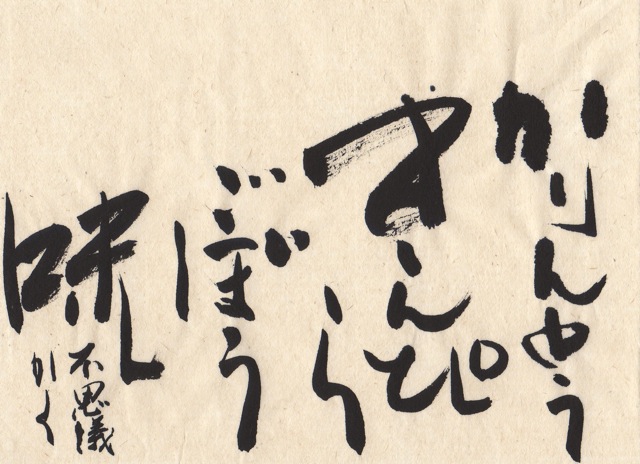 かりんとう
きんぴら
ごぼう
味し
不思議
かく